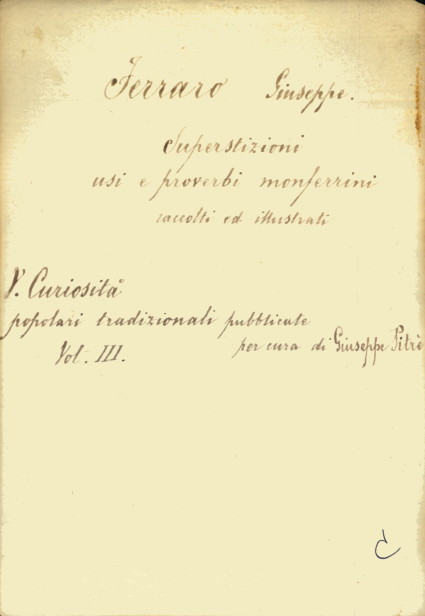 Ferraro Giuseppe.
Superstizioni
usi e proverbi monferrini
raccolti ed illustrati
V. Curiosità
popolari tradizionali pubblicate
per cura di Giuseppe Pitrè
Vol. III.
C